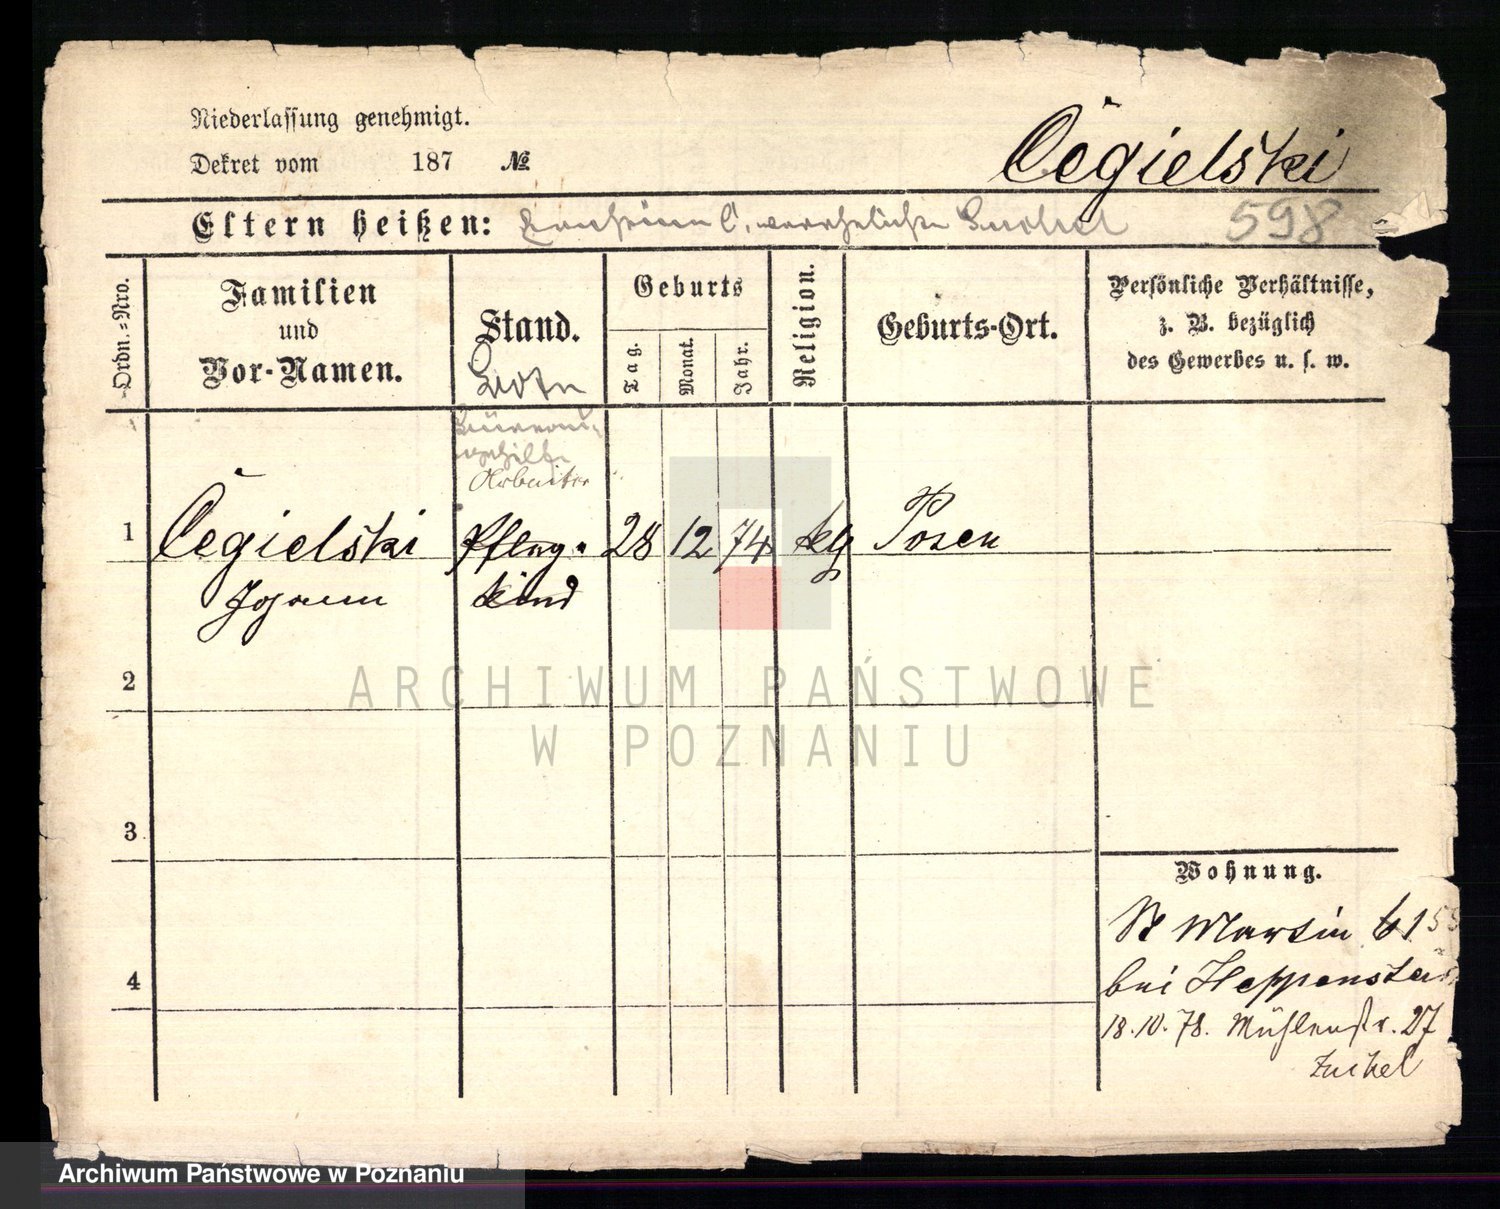 Niederlassung genehmigt.
Dekret vom 187 №
Cegielski
Eltern heißen: C. verehelichte
598
Ordn.-Nro.
Familien
und
Vor-Namen.
Stand.
Geburts
Tag.
Monat.
Jahr.
Religion.
Geburts-Ort.
Persönliche Verhältnisse,
z. B. bezüglich
des Gewerbes u. s. w.
gehilfe
Arbeiter
1 Cegielski Pfleg- 28 12 74 Posen
Johann kind
2
ARCHIWUM PAŃSTWOWE
W POZNANIU
3
Wohnung.
St Martin 61
bei
4
18.10.78. Mühlenstr. 27
Archiwum Państwowe w Poznaniu